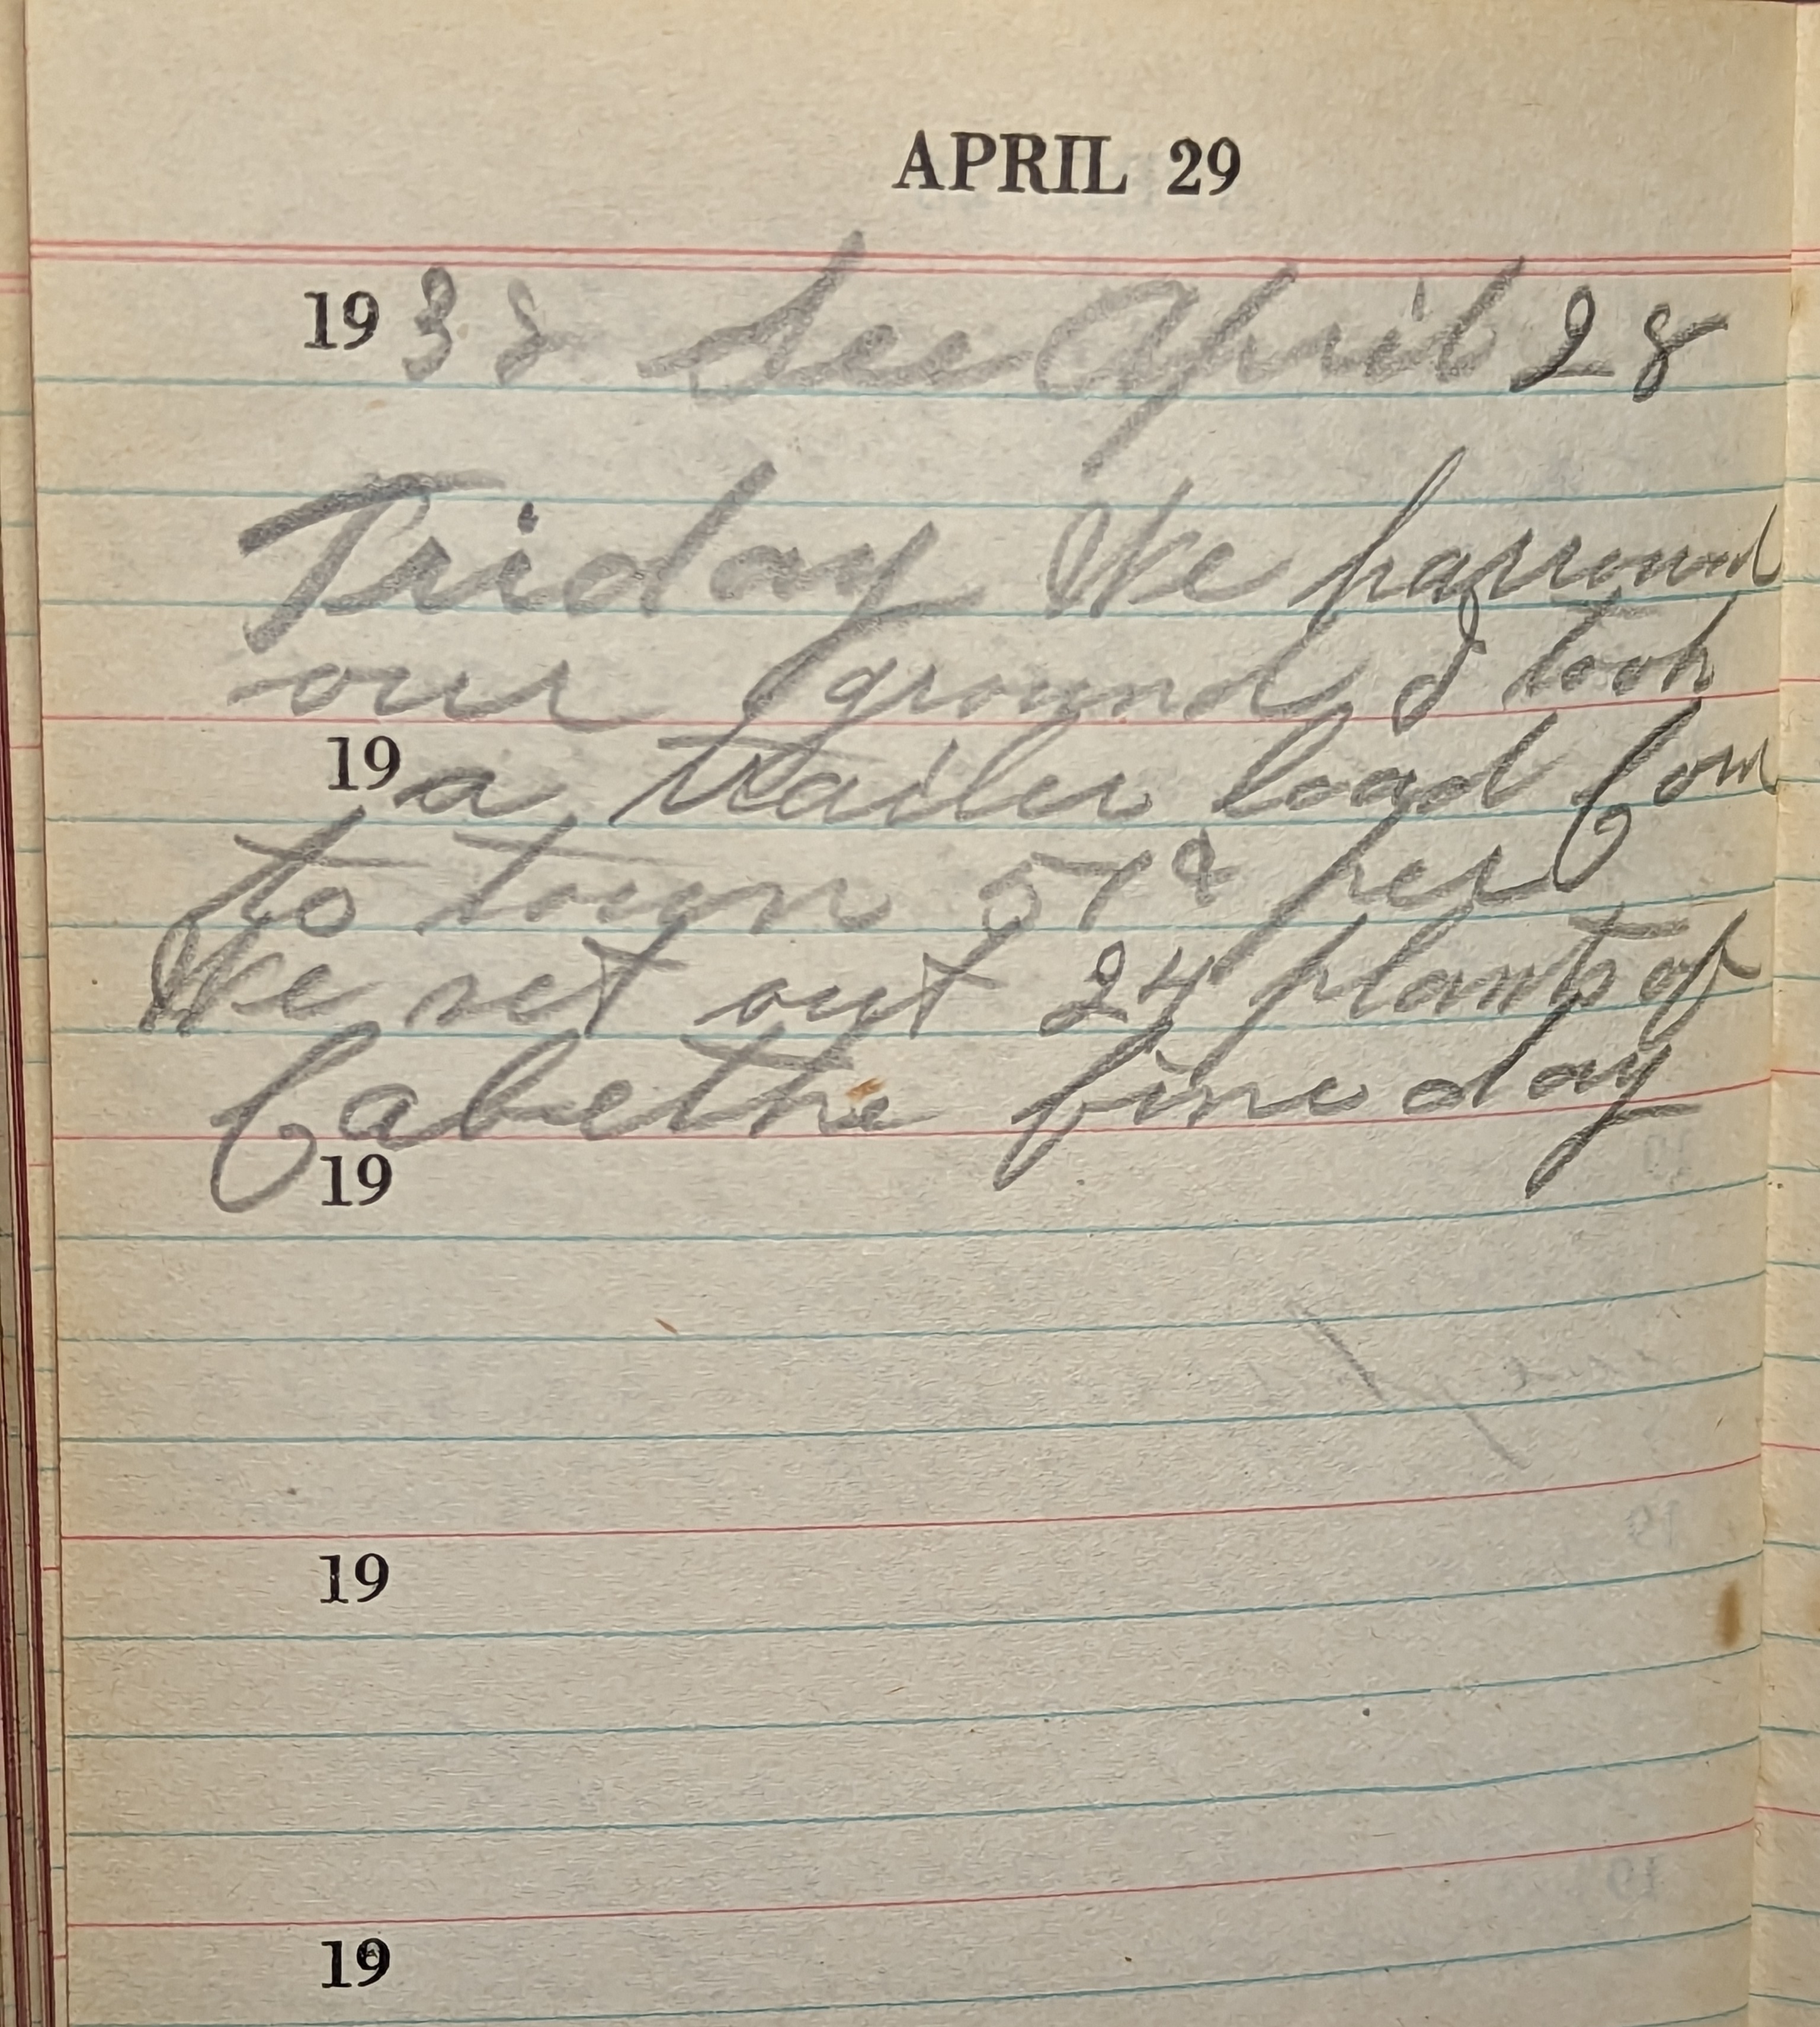 APRIL 29
1938 See April 28
Friday We harrowed
our ground I took
19 a trailer load Corn
to town 57¢ per
We set out 24 plants of
Cabethe fine day
19
19
19